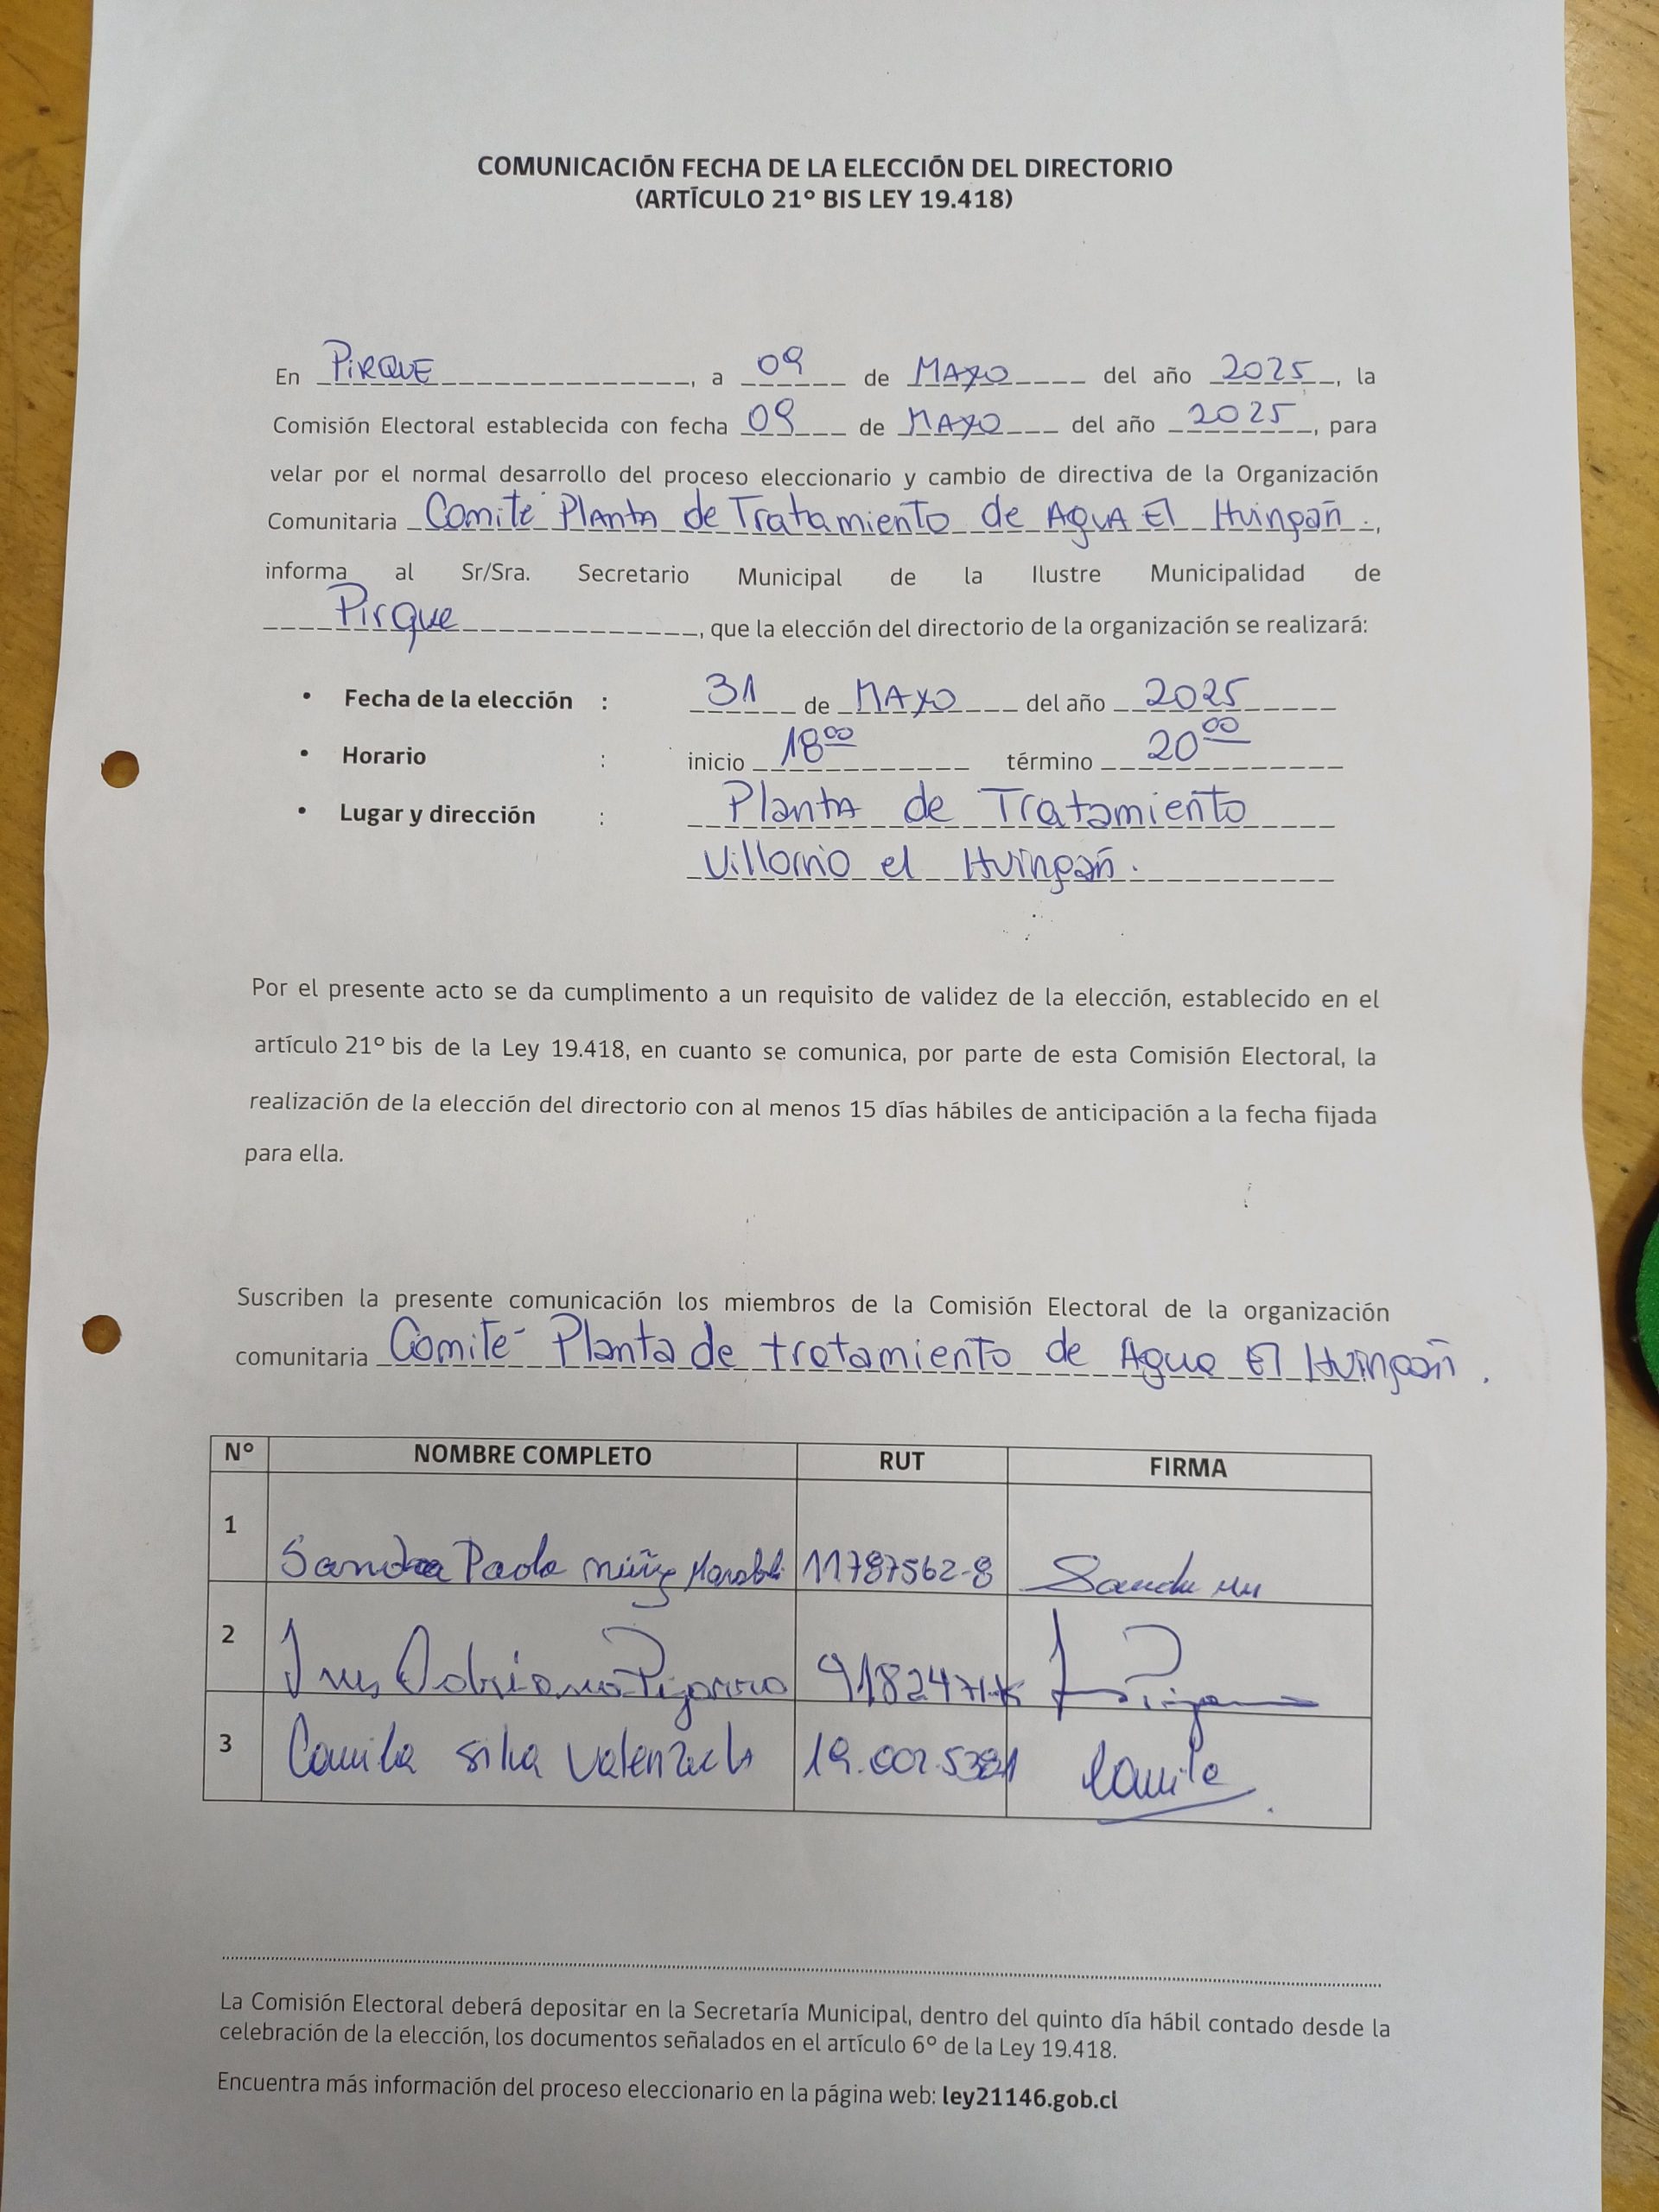 COMUNICACIÓN FECHA DE LA ELECCIÓN DEL DIRECTORIO
(ARTÍCULO 21º BIS LEY 19.418)
En PIRQUE, a 09 de MAYO del año 2025, la
Comisión Electoral establecida con fecha 09 de MAYO del año 2025, para
velar por el normal desarrollo del proceso eleccionario y cambio de directiva de la Organización
Comunitaria Comité Planta de Tratamiento de AGUA El Huingañ.,
informa al Sr/Sra. Secretario Municipal de la Ilustre Municipalidad de
Pirque, que la elección del directorio de la organización se realizará:
• Fecha de la elección : 31 de MAYO del año 2025
• Horario : inicio 18⁰⁰ término 20⁰⁰
• Lugar y dirección : Planta de Tratamiento
Villorrio el Huingañ.
Por el presente acto se da cumplimento a un requisito de validez de la elección, establecido en el
artículo 21º bis de la Ley 19.418, en cuanto se comunica, por parte de esta Comisión Electoral, la
realización de la elección del directorio con al menos 15 días hábiles de anticipación a la fecha fijada
para ella.
Suscriben la presente comunicación los miembros de la Comisión Electoral de la organización
comunitaria Comité Planta de tratamiento de Agua El Huingañ.
Nº NOMBRE COMPLETO RUT FIRMA
1 Sandra Paola Múñoz 11787562-8 Sandra
2 Ines Adriana Pizarro 9182471-K
3 Camila silva Valenzuela 19.002.5 Camila
La Comisión Electoral deberá depositar en la Secretaría Municipal, dentro del quinto día hábil contado desde la
celebración de la elección, los documentos señalados en el artículo 6º de la Ley 19.418.
Encuentra más información del proceso eleccionario en la página web: ley21146.gob.cl